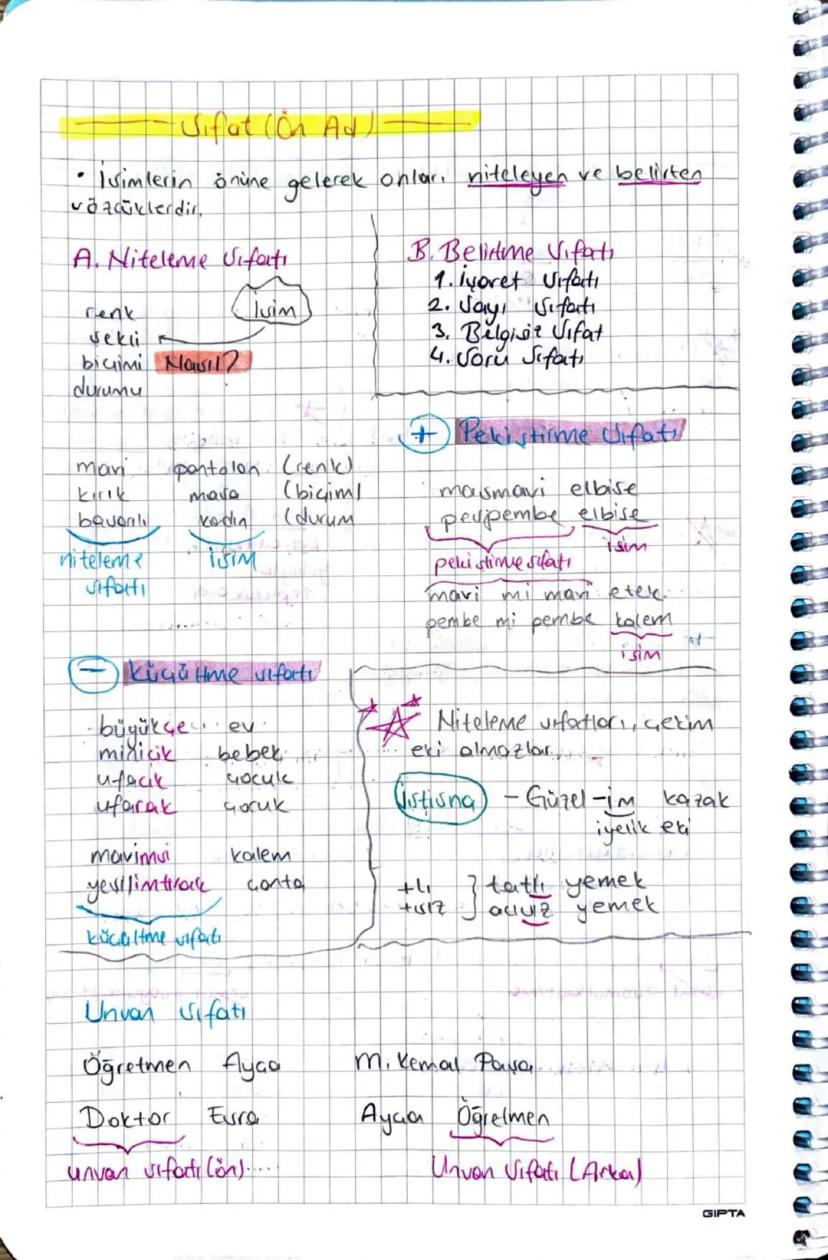 Sıfat (Ön Ad)
• İsimlerin önüne gelerek onları niteleyen ve belirten
sözcüklerdir.
A. Niteleme Sıfatı
İsim
renk
şekli
biçimi Nasıl?
durumu
B. Belirtme Sıfatı
1. İşaret Sıfatı
2. Sayı Sıfatı
3. Belgisiz Sıfat
4. Soru Sıfatı
mavi pantolon (renk)
kırık masa (biçim)
başarılı kadın (durum
niteleme isim
sıfatı
+ Pekiştirme Sıfatı
masmavi elbise
pespembe elbise
isim
pekiştirme sıfatı
mavi mi mavi etek
pembe mi pembe kalem
isim
- Küçültme sıfatı
büyükçe ev
minicik bebek
ufacık çocuk
ufarak çocuk
mavimsi kalem
yeşilimtırak çanta
küçültme sıfatı
Niteleme sıfatları, çekim
eki almazlar.
İstisna - Güzel-im kazak
iyelik eki
+lı } tatlı yemek
+sız acısız yemek
Unvan sıfatı
Öğretmen Ayça M. Kemal Paşa
Doktor Esra Ayça Öğretmen
unvan sıfatı (ön) Unvan Sıfatı (Arka)
GIPTA